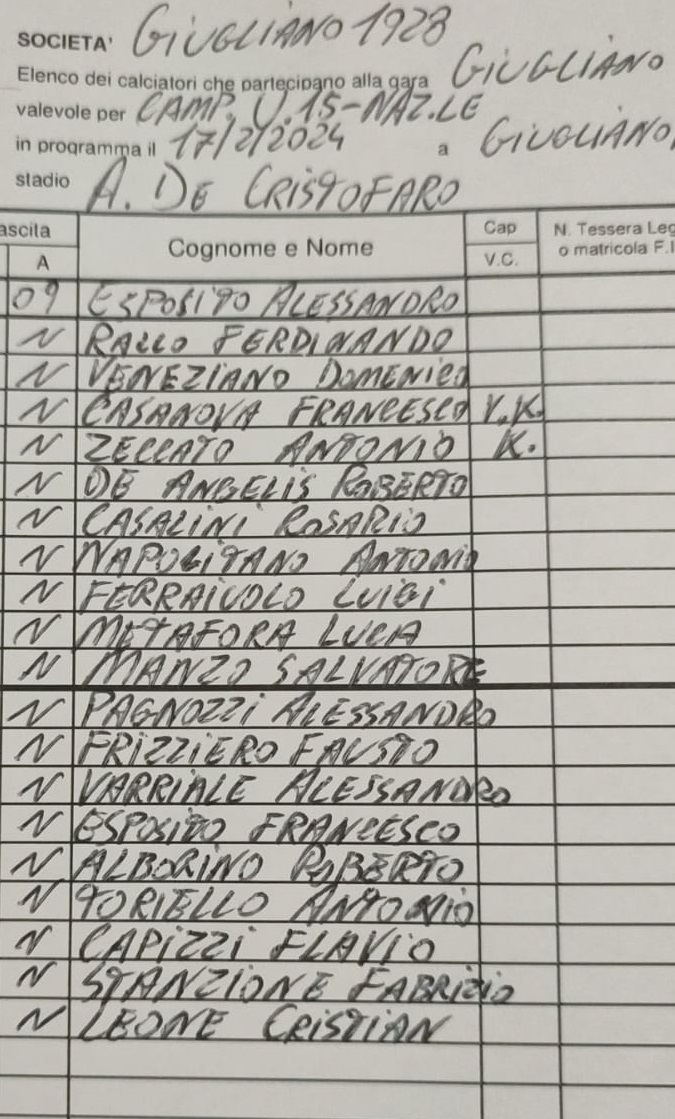 SOCIETA' GIUGLIANO 1928
Elenco dei calciatori che partecipano alla gara GIUGLIANO
valevole per CAMP. U.15-NAZ.LE
in programma il 17/2/2024 a GIUGLIANO
stadio A. DE CRISTOFARO
ascita Cognome e Nome Cap N. Tessera Leg
A V.C. o matricola F.I
09 ESPOSITO ALESSANDRO
N RALLO FERDINANDO
N VENEZIANO DOMENICO
N CASANOVA FRANCESCO V.K.
N ZECCATO ANTONIO K.
N DE ANGELIS ROBERTO
N CASALINI ROSARIO
N NAPOLITANO ANTONIO
N FERRAIUOLO LUIGI
N METAFORA LUCA
N MANZO SALVATORE
N PAGNOZZI ALESSANDRO
N FRIZZIERO FAUSTO
N VARRIALE ALESSANDRO
N ESPOSITO FRANCESCO
N ALBORINO ROBERTO
N TORIELLO ANTONIO
N CAPIZZI FLAVIO
N STANZIONE FABRIZIO
N LEONE CRISTIAN